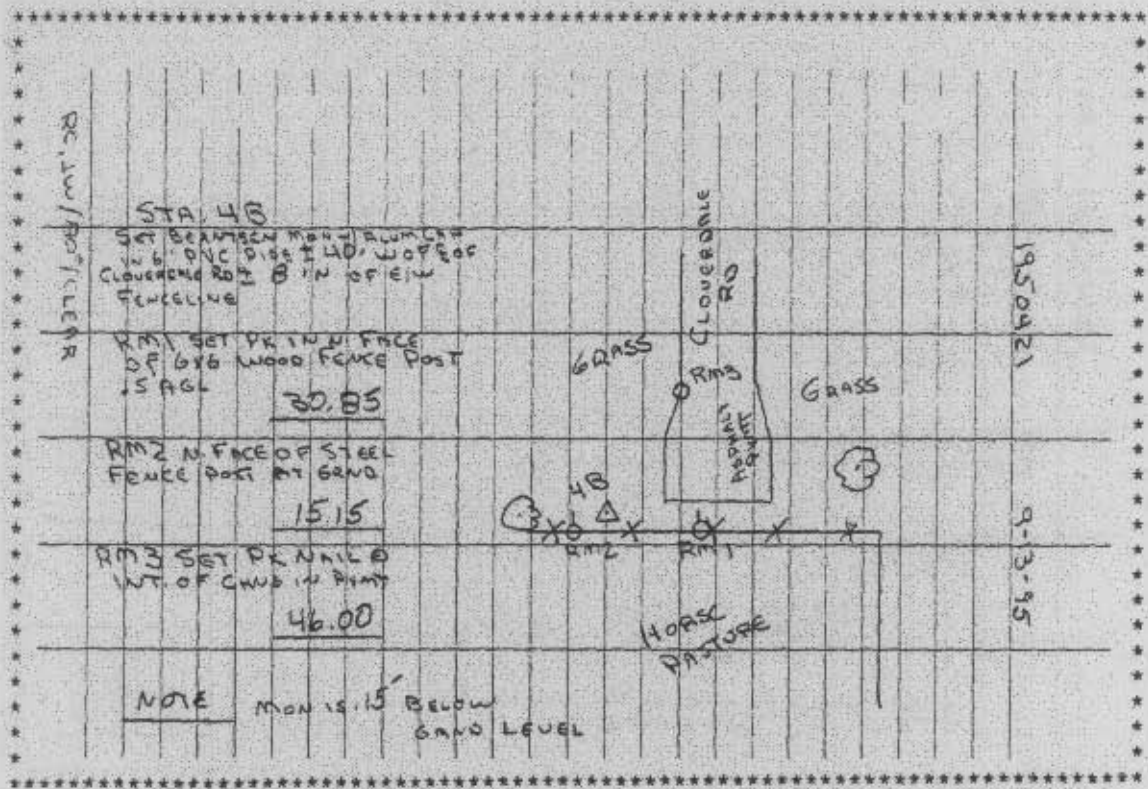 STA. 4B
SET BERNTSEN MON W/ ALUM CAP
IN 6" PVC PIPE ± 40' W OF E OF
CLOVERDALE RD ± 8' N OF E/W
FENCELINE
RM1 SET PK IN N. FACE
OF 6x6 WOOD FENCE POST
.5 AGL
30.85
RM2 N. FACE OF STEEL
FENCE POST AT GRND
15.15
RM3 SET PK NAIL @
INT. OF CHNG IN PVMT
46.00
NOTE MON IS .15' BELOW
GRND LEVEL
CLOVERDALE
RD
GRASS
RM3
GRASS
ASPHALT
PVMT
4B
RM2
RM1
HORSE
PASTURE
1950421
9-13-95
/CLEAR